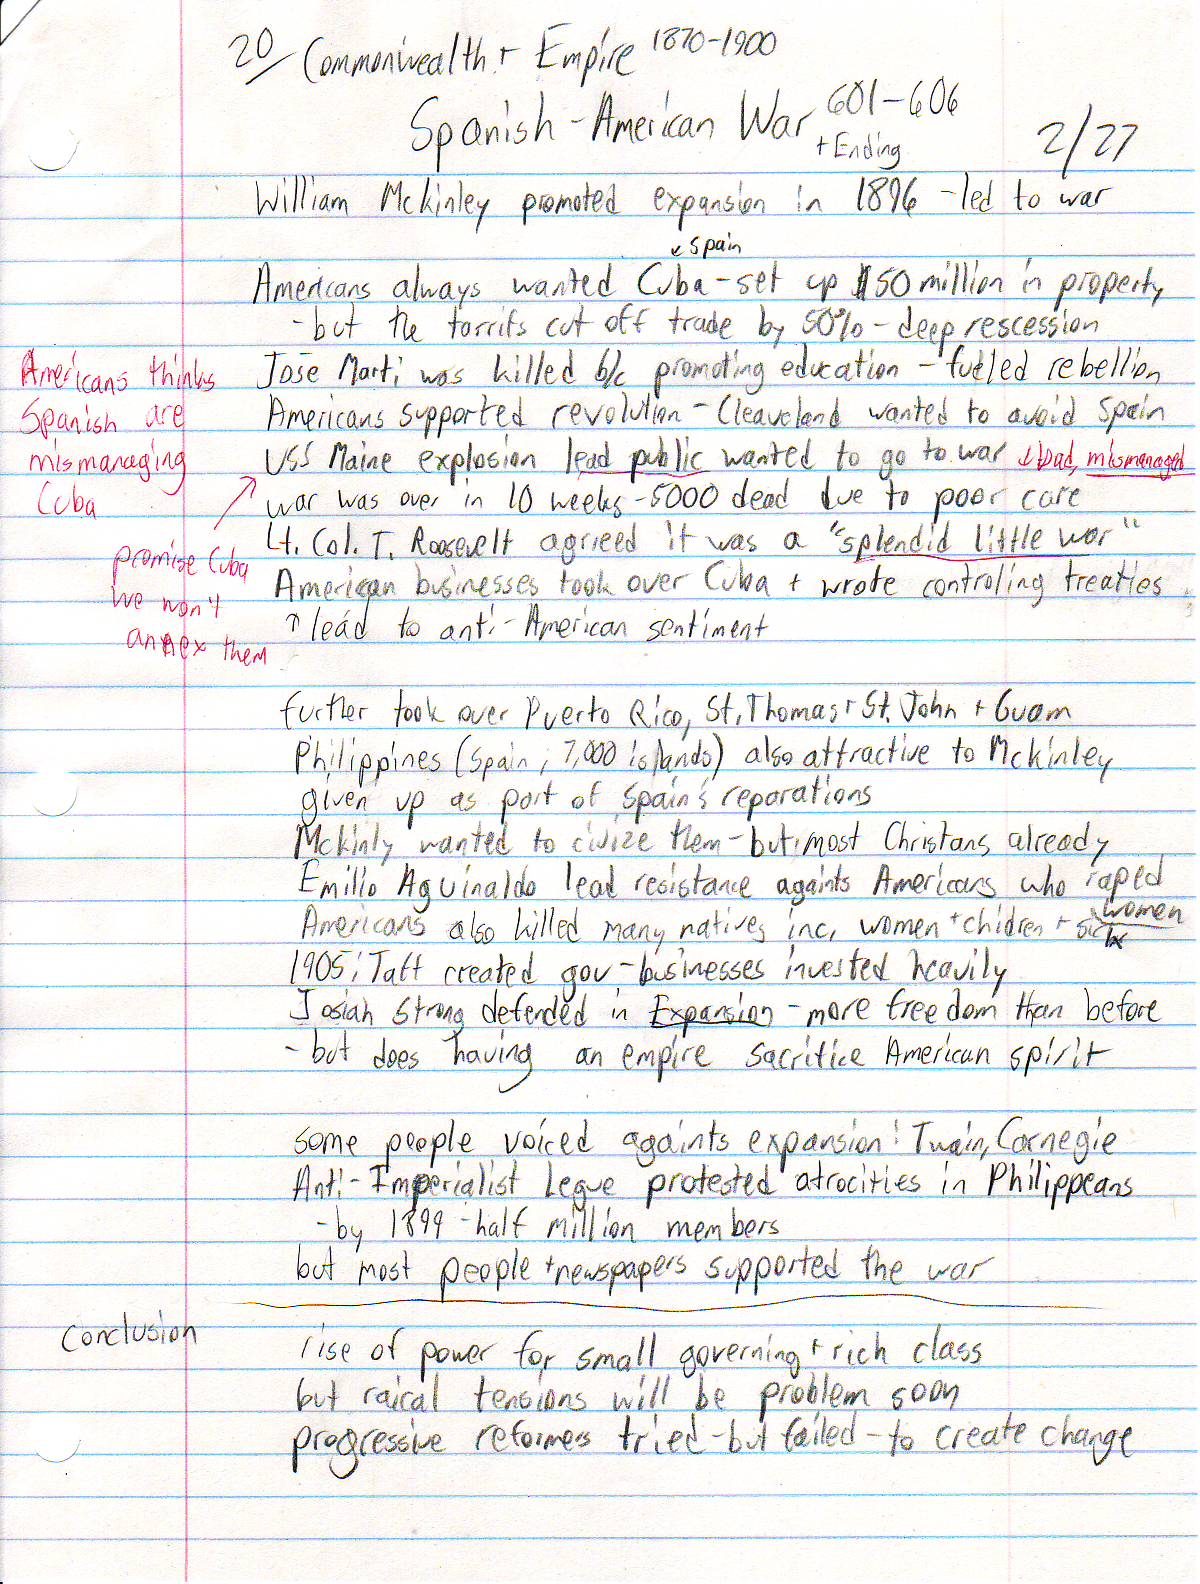 20/ Commonwealth + Empire 1870-1900
Spanish-American War 601-606
+ Ending
2/27
William McKinley promoted expansion in 1896 - led to war
↙ Spain
Americans always wanted Cuba - set up $50 million in property
- but the tarrifs cut off trade by 50% - deep rescession
Jose Marti was killed b/c promoting education - fueled rebellion
Americans supported revolution - Cleaveland wanted to avoid Spain
USS Maine explosion lead public wanted to go to war ↓ bad, mismanaged
war was over in 10 weeks - 5000 dead due to poor care
Lt. Col. T. Roosevelt agrieed it was a "splendid little war"
American businesses took over Cuba + wrote controling treaties
↑ lead to anti-American sentiment
Americans thinks
Spanish are
mismanaging
Cuba
promise Cuba
we won't
annex them
further took over Puerto Rico, St. Thomas + St. John + Guam
Philippines (Spain, 7,000 islands) also attractive to McKinley
given up as part of Spain's reparations
McKinly wanted to civize them - but most Christans already
Emilio Aguinaldo lead resistance againts Americans who raped
women
Americans also killed many natives inc, women + chidren +
1905: Taft created gov - businesses invested heavily
Josiah Strong defended in Expansion - more freedom than before
- but does having an empire sacrifice American spirit
some people voiced againts expansion: Twain, Carnegie
Anti-Imperialist Legue protested atrocities in Philippeans
- by 1899 - half million members
but most people + newspapers supported the war
Conclusion
rise of power for small governing + rich class
but raical tensions will be problem soon
progressive reformers tried - but failed - to create change